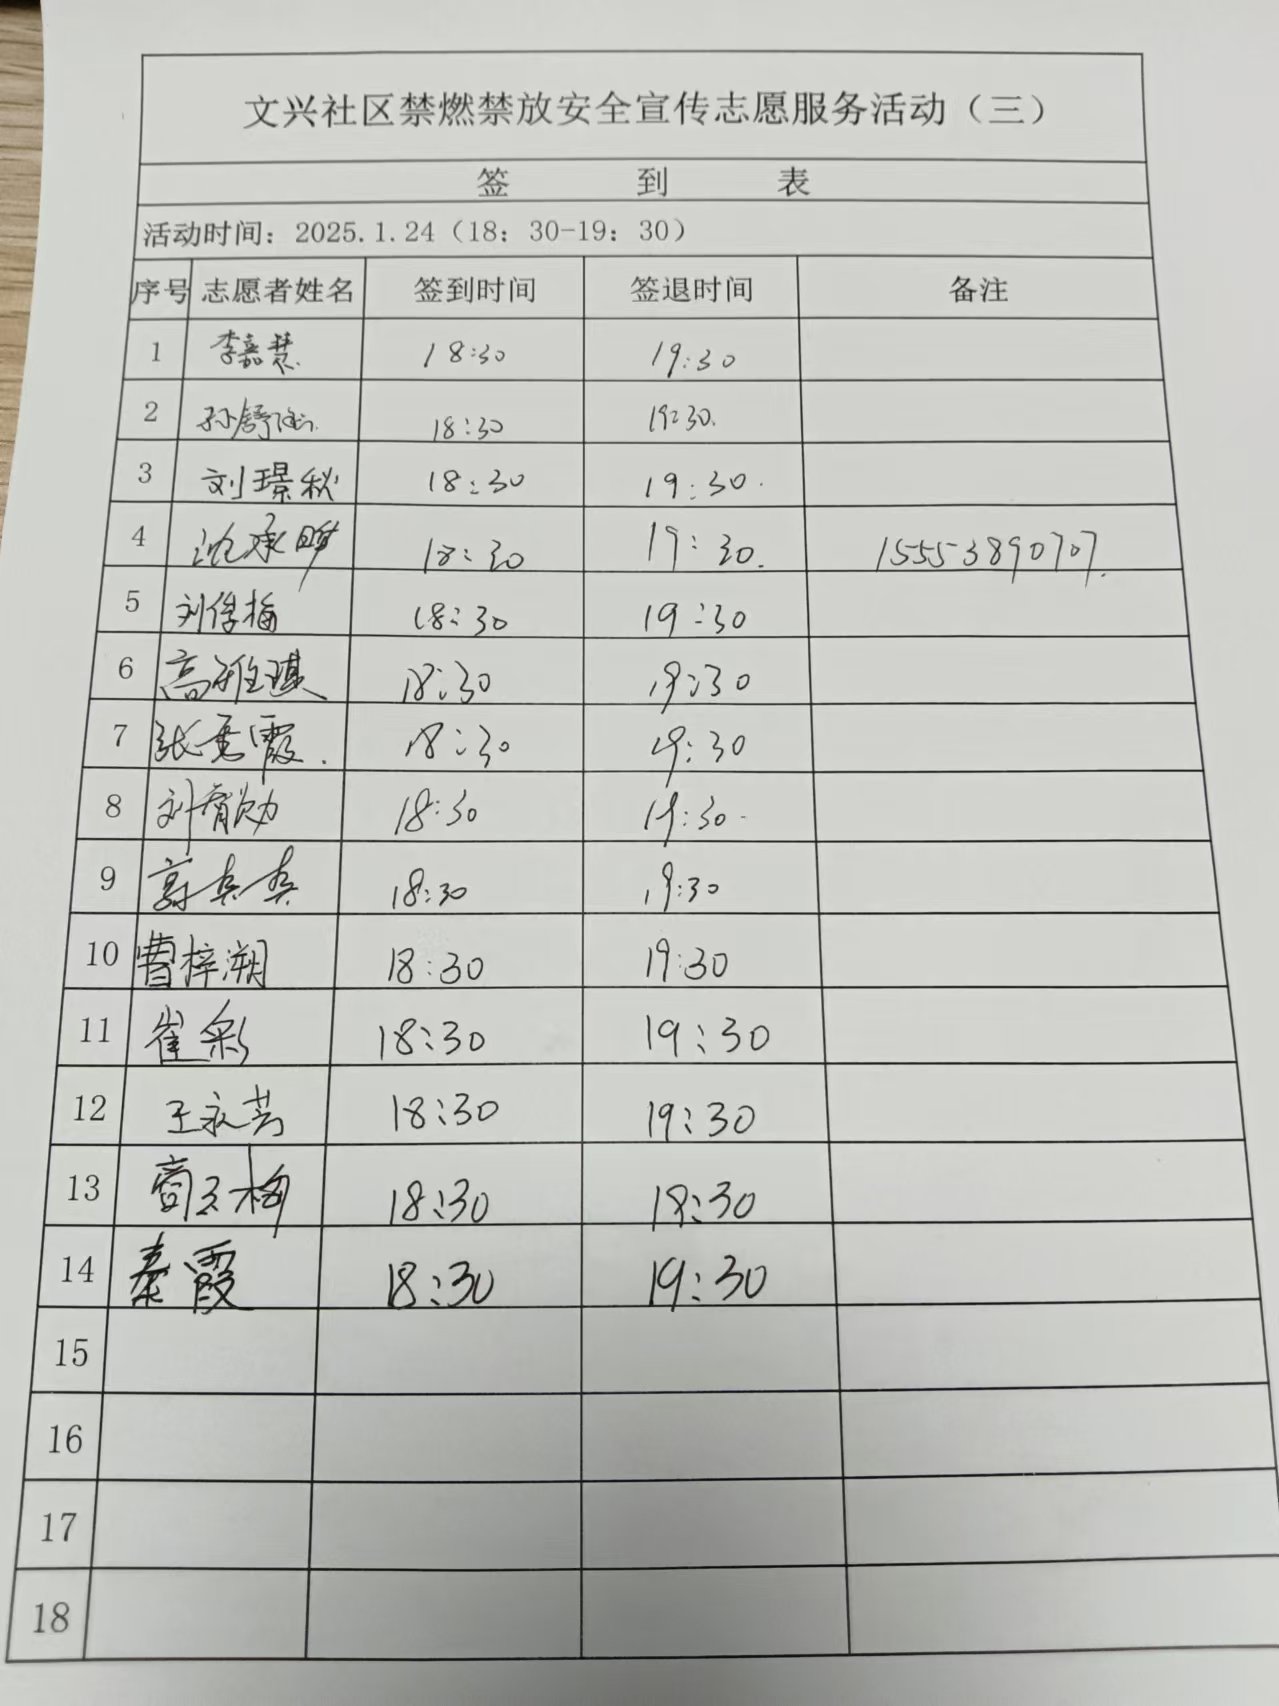 文兴社区禁燃禁放安全宣传志愿服务活动（三）
签 到 表
活动时间：2025.1.24（18：30-19：30）
序号 志愿者姓名 签到时间 签退时间 备注
1 李嘉慧 18:30 19:30
2 孙舒 18:30 19:30.
3 刘璟秋 18:30 19:30.
4 沈承晔 18:30 19:30. 15553890707.
5 刘俊梅 18:30 19:30
6 高雅琪 18:30 19:30
7 张秀霞. 18:30 19:30
8 刘 18:30 19:30.
9 18:30 19:30
10 曹梓溯 18:30 19:30
11 崔彩 18:30 19:30
12 王永芳 18:30 19:30
13 商玉梅 18:30 18:30
14 秦霞 18:30 19:30
15
16
17
18